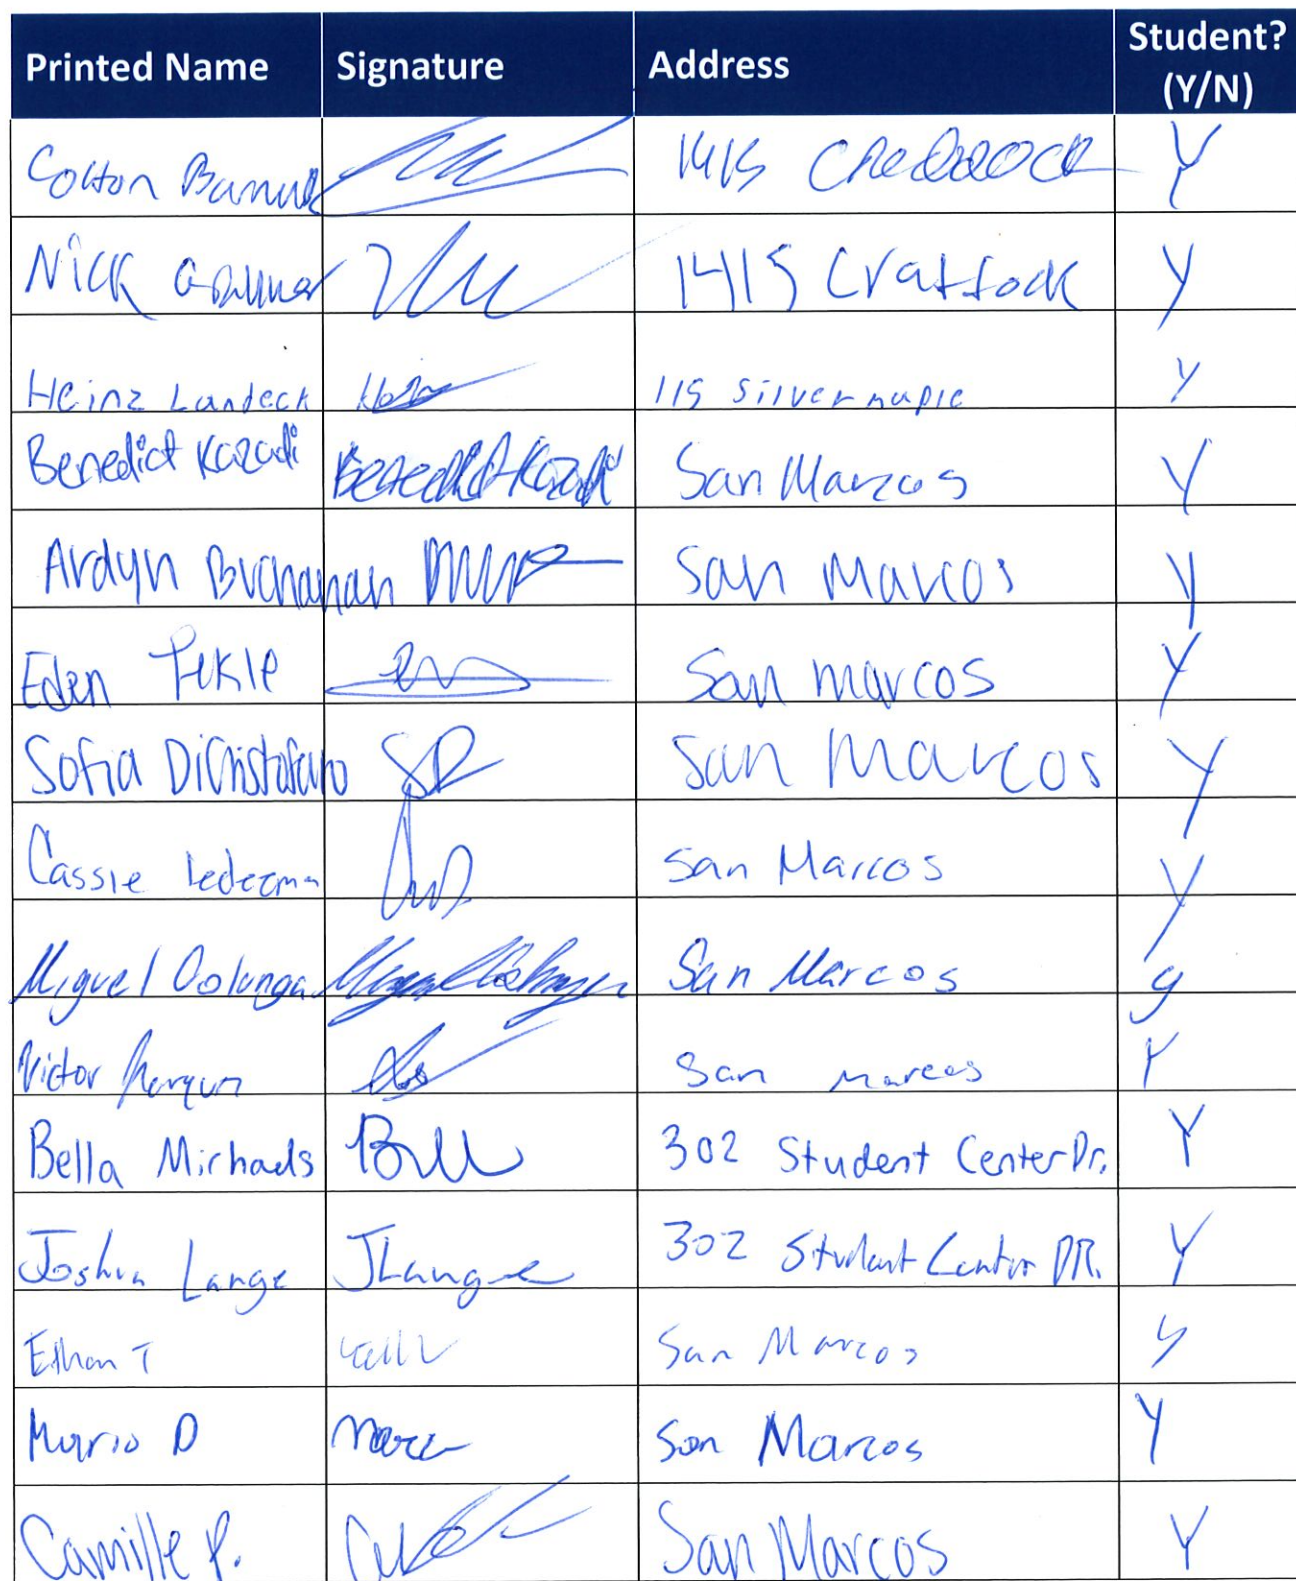 Printed Name Signature Address Student? (Y/N)
Colton 1415 Y
Nick 1415 Craffock Y
Heinz Landeck 115 Silver maple Y
Benedict Kazadi Benedict Kazadi San Marcos Y
Ardyn Buchanan San Marcos Y
Eden Tekle San Marcos Y
Sofia DiCristofaro SD San Marcos Y
Cassie Ledezma San Marcos Y
Miguel Colunga San Marcos y
Victor San Marcos Y
Bella Michaels 302 Student Center Dr. Y
Joshua Lange JLange 302 Student Center DR. Y
Ethan T San Marcos y
Mario D San Marcos Y
Camille P. San Marcos Y